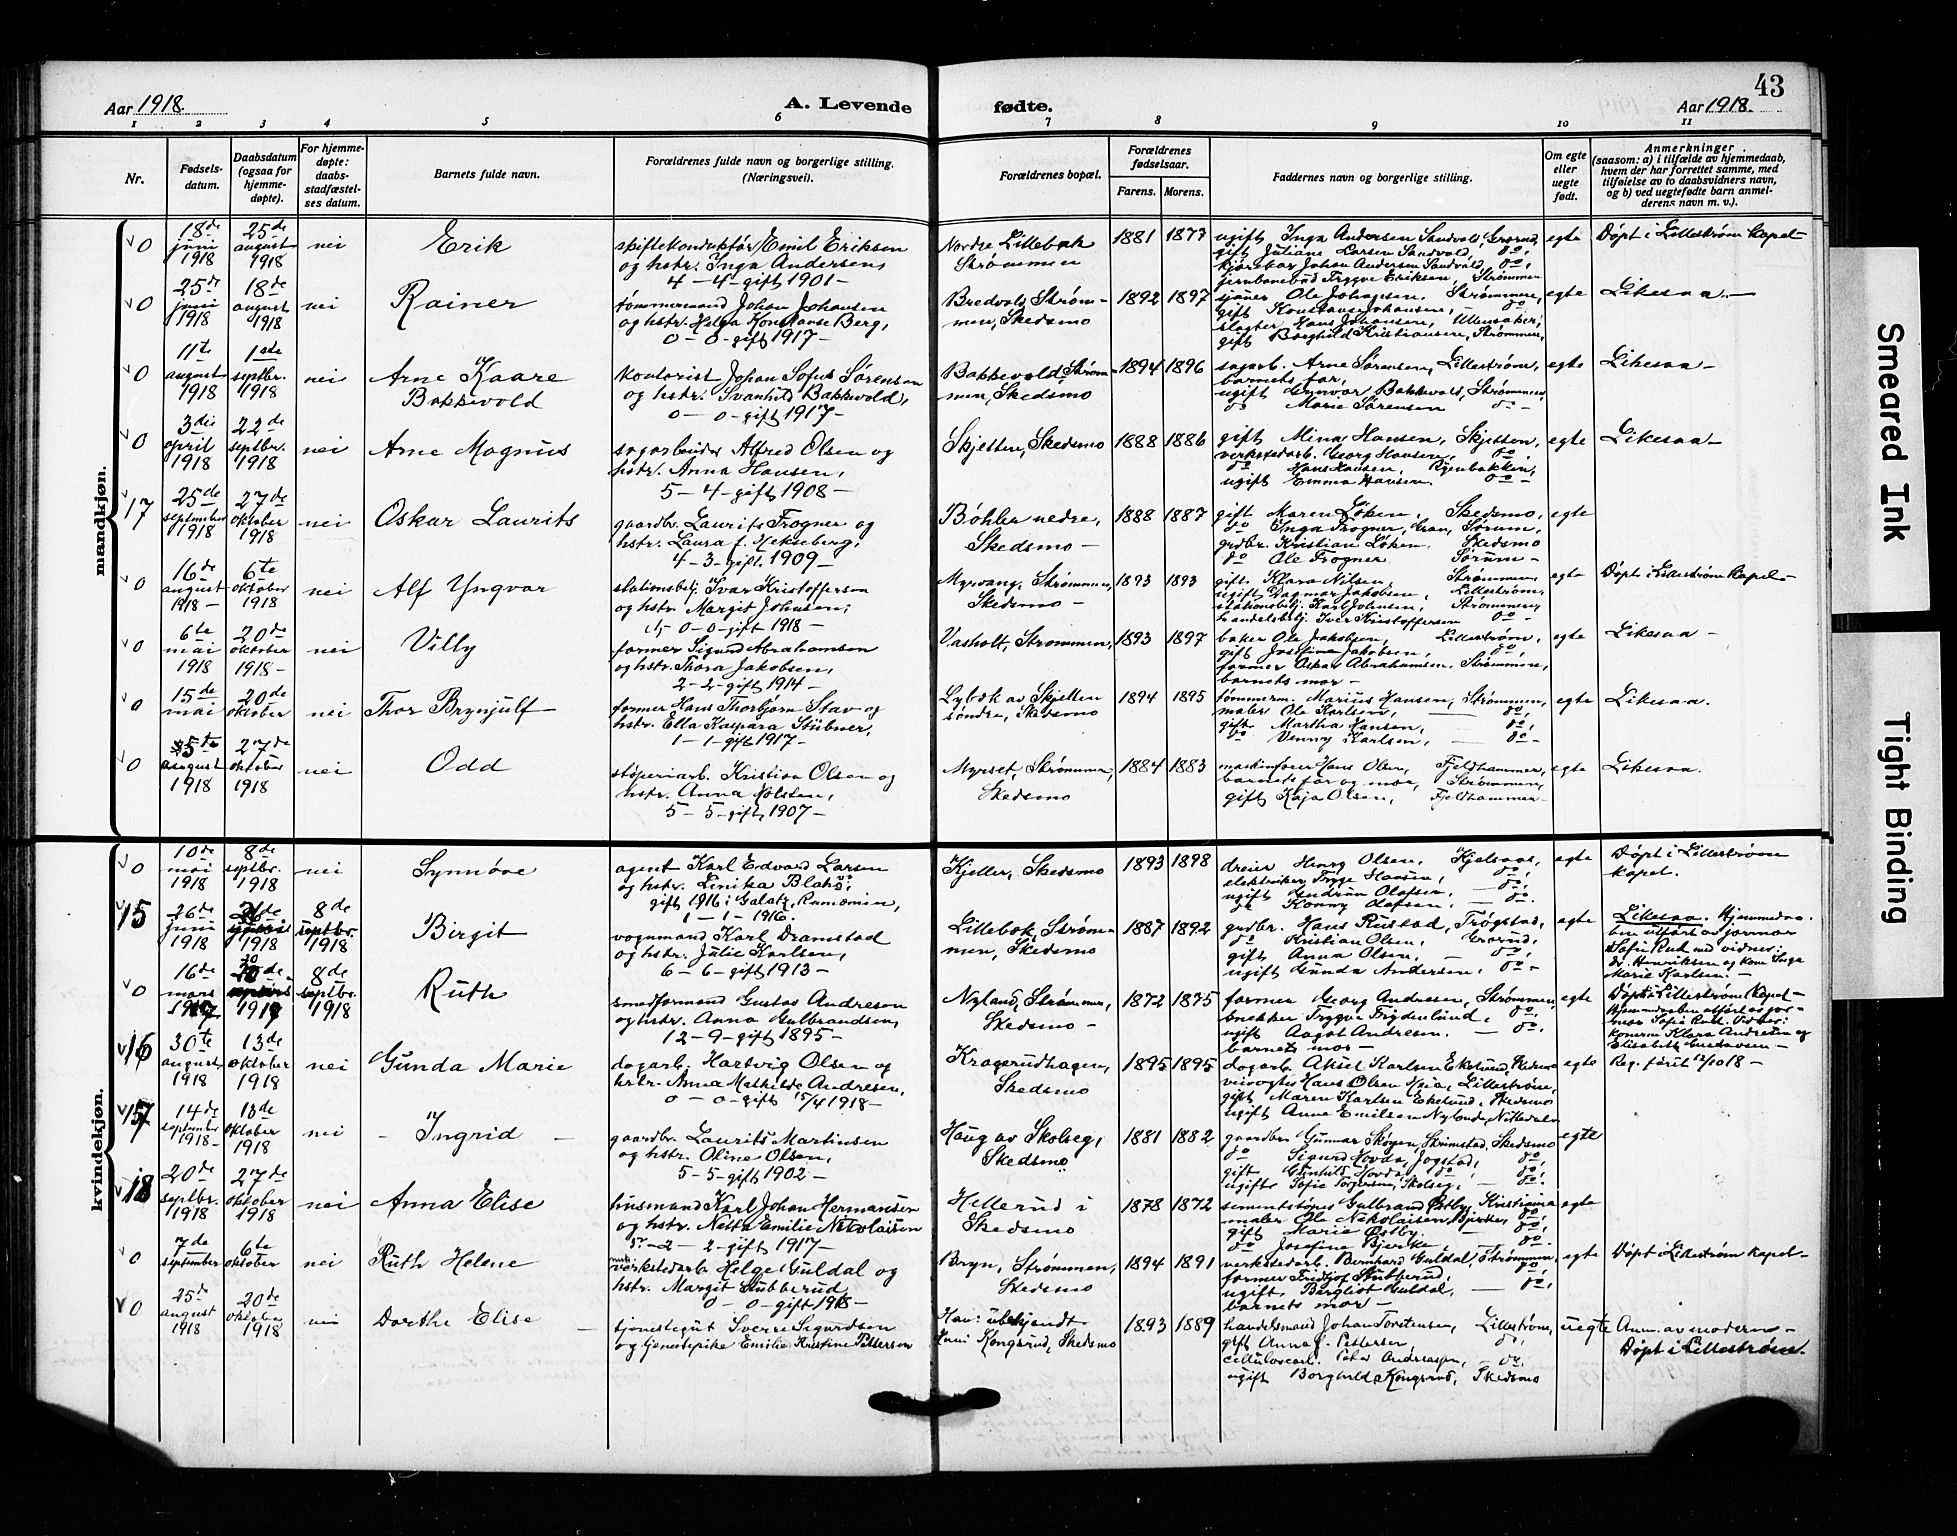 43
Aar 1918. A. Levende fødte. Aar 1918.
1 2 3 4 5 6 7 8 9 10 11
Nr.
Fødsels-
datum.
Daabsdatum
(ogsaa for
hjemme-
døpte).
For hjemme-
døpte:
daabs-
stadfæstel-
ses datum.
Barnets fulde navn.
Forældrenes fulde navn og borgerlige stilling.
(Næringsvei).
Forældrenes bopæl.
Forældrenes
fødselsaar.
Farens. Morens.
Faddernes navn og borgerlige stilling.
Om egte
eller
uegte
født.
Anmerkninger
(saasom: a) i tilfælde av hjemmedaab,
hvem der har forrettet samme, med
tilføielse av to daabsvidners navn,
og b) ved uegtefødte barn anmel-
derens navn m. v.).
mandkjøn.
0
18de
juni
1918
25de
august
1918
nei
Erik
skiftekonduktør Emil Eriksen
og hstr. Inga Andersen,
4-4-gift 1901-
Nordre Lillebæk
Strømmen
1881 1877
ugift Inga Andersen Sandvold, Grorud,
gift Juliane Larsen Sandvold, do,
Johan Andersen Sandvold, do,
jernbanebud Trygve Eriksen, Strømmen
egte
Døpt i Lillestrøm kapel-
0
25de
juni
1918
18de
august
1918
nei
Rainer
tømmermand Johan Johansen
og hstr. Helga Konstanse Berg,
0-0-gift 1917-
Bredvold, Strøm-
men, Skedsmo
1892 1897
Ole Johansen, Strømmen,
gift Konstanse Johansen, do
slagter Hans Johansen, Ullensaker,
gift Borghild Kristiansen, Strømmen,
egte
Likesaa.-
0
11te
august
1918
1ste
septbr.
1918
nei
Arne Kaare
Bakkevold
kontorist Johan Sofus Sørensen
og hstr. Svanhild Bakkevold,
0-0-gift 1917-
Bakkevold, Strøm-
men, Skedsmo
1894 1896
sagarb. Arne Sørensen, Lillestrøm,
barnets far,
ugift Gynvor Bakkevold, Strømmen,
do Marie Sørensen do-
egte
Likesaa-
0
3die
april
1918
22de
septbr.
1918
nei
Arne Magnus
sagarbeider Alfred Olsen og
hstr. Anna Hansen,
5-4-gift 1908-
Skjetten, Skedsmo
1888 1886
gift Mina Hansen, Skjetten,
verkstedarb. Georg Hansen, do,
do Hans Hansen, Ryenbakken,
ugift Emma Hansen. do-
egte
Likesaa-
17
25de
september
1918
27de
oktober
1918
nei
Oskar Laurits
gaardbr. Laurits Frogner og
hstr. Laura f. Hekseberg,
4-3-gift 1909-
Bøhler nedre,
Skedsmo-
1888 1887
gift Maren Løken, Skedsmo,
do Inga Frogner, Gran, Sørum,
grdbr. Kristian Løken, Skedsmo
do Ole Frogner Sørum-
egte
0
16de
august
1918-
6te
oktober
1918
nei
Alf Yngvar
stationsbtj. Ivar Kristoffersen
og hstr. Margit Johnsen,
0-0-gift 1918-
Myrvang, Strømmen,
Skedsmo-
1893 1893
gift Klara Nilsen, Strømmen,
ugift Dagmar Jakobsen, Lillestrøm,
stationsbtj. Karl Johnsen, Strømmen,
handelsbtj. Iver Kristoffersen do-
egte
Døpt i Lillestrøm kapel-
0
6te
mai
1918
20de
oktober
1918-
nei
Villy
former Sigurd Abrahamsen
og hstr. Thora Jakobsen,
2-2-gift 1914-
Vasholt, Strømmen,
1893 1897
baker Ole Jakobsen, Lillestrøm,
gift Josefine Jakobsen, do,
former Oskar Abrahamsen, Strømmen,
barnets mor-
egte
Likesaa-
0
15de
mai
20de
oktober
nei
Thor Brynjulf
former Hans Thorbjørn Stav og
hstr. Ella Kaspara Stübner,
1-1-gift 1917-
Lybæk av Skjetten
søndre, Skedsmo
1894 1895
tømmerm. Marius Hansen, Strømmen,
maler Ole Karlsen, do,
gift Martha Hansen, do,
do Venny Karlsen, do-
egte
Likesaa.
0
5te
august
1918
27de
oktober
1918
nei
Odd
støperiarb. Kristian Olsen og
hstr. Anna Holsten,
5-5-gift 1907-
Myrset, Strømmen,
Skedsmo
1884 1883
maskinfører Hans Olsen, Fjeldhammer,
barnets far og mor, Strømmen,
gift Kaja Olsen, Fjeldhammer-
egte
Likesaa.
kvindekjøn.
0
10de
mai
1918
8de
septbr.
1918
nei
Synnøve
agent Karl Edvard Larsen
og hstr. Linika Blahs,
gift 1916 i Galatz, Rumænien,
1-1-1916.
Kjeller, Skedsmo
1893 1898
dreier Henry Olsen, Kjelsaas,
elektriker Trygve Hansen, do,
ugift Gudrun Olafsen, do,
do Konny Olafsen, do-
egte
Døpt i Lillestrøm
kapel.
15
26de
juni
1918
1918
8de
septbr.
1918
Birgit
vognmand Karl Dramstad
og hstr. Julie Karlsen,
6-6-gift 1913-
Lillebæk, Strøm-
men, Skedsmo
1887 1892
grdbr. Hans Rustad, Trøgstad,
do Kristian Olsen, Grorud,
gift Anna Olsen, do,
ugift Gunda Andersen, do-
egte
Likesaa. Hjemmedaa-
ben utført av jormor
Sofie Rud med vidner:
dr. Henriksen og kone Inga
Marie Karlsen.-
0
16de
mars
8de
septbr.
1918
Ruth
smedformand Gustav Andresen
og hstr. Anna Gulbrandsen,
12-9-gift 1895-
Nyland, Strømmen,
Skedsmo-
1872 1875
former Georg Andresen, Strømmen,
snekker Trygve Frydenlund, do,
ugift Aagot Andresen. do,
barnets mor-
egte
Døpt i Lillestrøm kapel-
Hjemmedaaben utført av jor-
mor Sofie Rud. Vidner:
konerne Klara Andresen og
Elisabeth Gustavsen-
16
30te
august
1918
13de
oktober
1918
nei
Gunda Marie
dagarb. Hartvig Olsen og
hstr. Anna Mathilde Andresen,
0-0-gift 15/4 1918-
Kragerudhagen,
Skedsmo
1895 1895
dagarb. Aksel Karlsen Ekelund, Skedsmo
veivogter Hans Olsen Moia, Lillestrøm,
gift Maren Karlsen Ekelund, Skedsmo
ugift Anna Emilsen Nylænde, Nittedalen
egte
Reg. ført 12/10 18-
17
14de
september
1918-
13de
oktober
1918
nei
- Ingrid -
gaardbr. Laurits Martinsen
og hstr. Oline Olsen,
5-5-gift 1902-
Haug av Skolseg,
Skedsmo
1881 1882
gaardbr. Gunnar Skøyen, Strømstad, Skedsmo
do Sigurd Hovde, Jogstad, do,
gift Gunhild Hovde, do, do,
ugift Sofie Torgersen, Skolseg, do-
egte
18
20de
septbr.
1918
27de
oktober
1918
nei
Anna Elise
husmand Karl Johan Hermansen
og hstr. Netta Emilie Nikolaisen
2-2-gift 1917-
Hellerud i
Skedsmo
1878 1872
sementstøper Gulbrand Østby, Kristiania
maler Ole Nikolaisen Bjerke, do,
gift Marie Østby, do,
do Josefine Bjerke, do-
egte
0
7de
september
6te
oktober
nei
Ruth Helene
verkstedarb. Helge Guldal og
hstr. Margit Stubberud,
0-0-gift 1918-
Bryn, Strømmen,
Skedsmo
1894 1891
verkstedarb. Bernhard Guldal, Strømmen,
former Fridtjof Stubberud, do,
ugift Bergliot Guldal, do,
barnets mor-
egte
Døpt i Lillestrøm kapel-
0
25de
august
1918
20de
oktober
1918
nei
Dorthe Elise
tjenestegut Sverre Sigurdsen
og tjenestepike Emilie Kristine Pettersen
Han: ubekjendt
Hun: Kongsrud, Skedsmo
1893 1889
handelsmand Johan Torstensen, Lillestrøm,
gift Anna J. Pettersen, do,
cellulosearb. Peter Andreassen, do,
ugift Borghild Kongsrud, Skedsmo
uegte
Anm. av moderen-
Døpt i Lillestrøm.
Smeared Ink
Tight Binding